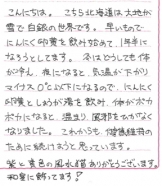 こんにちは。こちら北海道は大地が
雪で白銀の世界です。早いもので
にんにく卵黄を飲み始めて、1年半に
なろうとしてます。冬はどうしても体
が冷え、夜になると、気温が下がり
マイナス0°以下になるので、にんにく
卵黄としょうが湯を飲み、体がポカ
ポカになると、温まり、風邪をひかなく
なりました。これからも、健康維持の
ために続けようと思っています。
紫と黄色の風水額ありがとうございます。
和室に飾ってます!